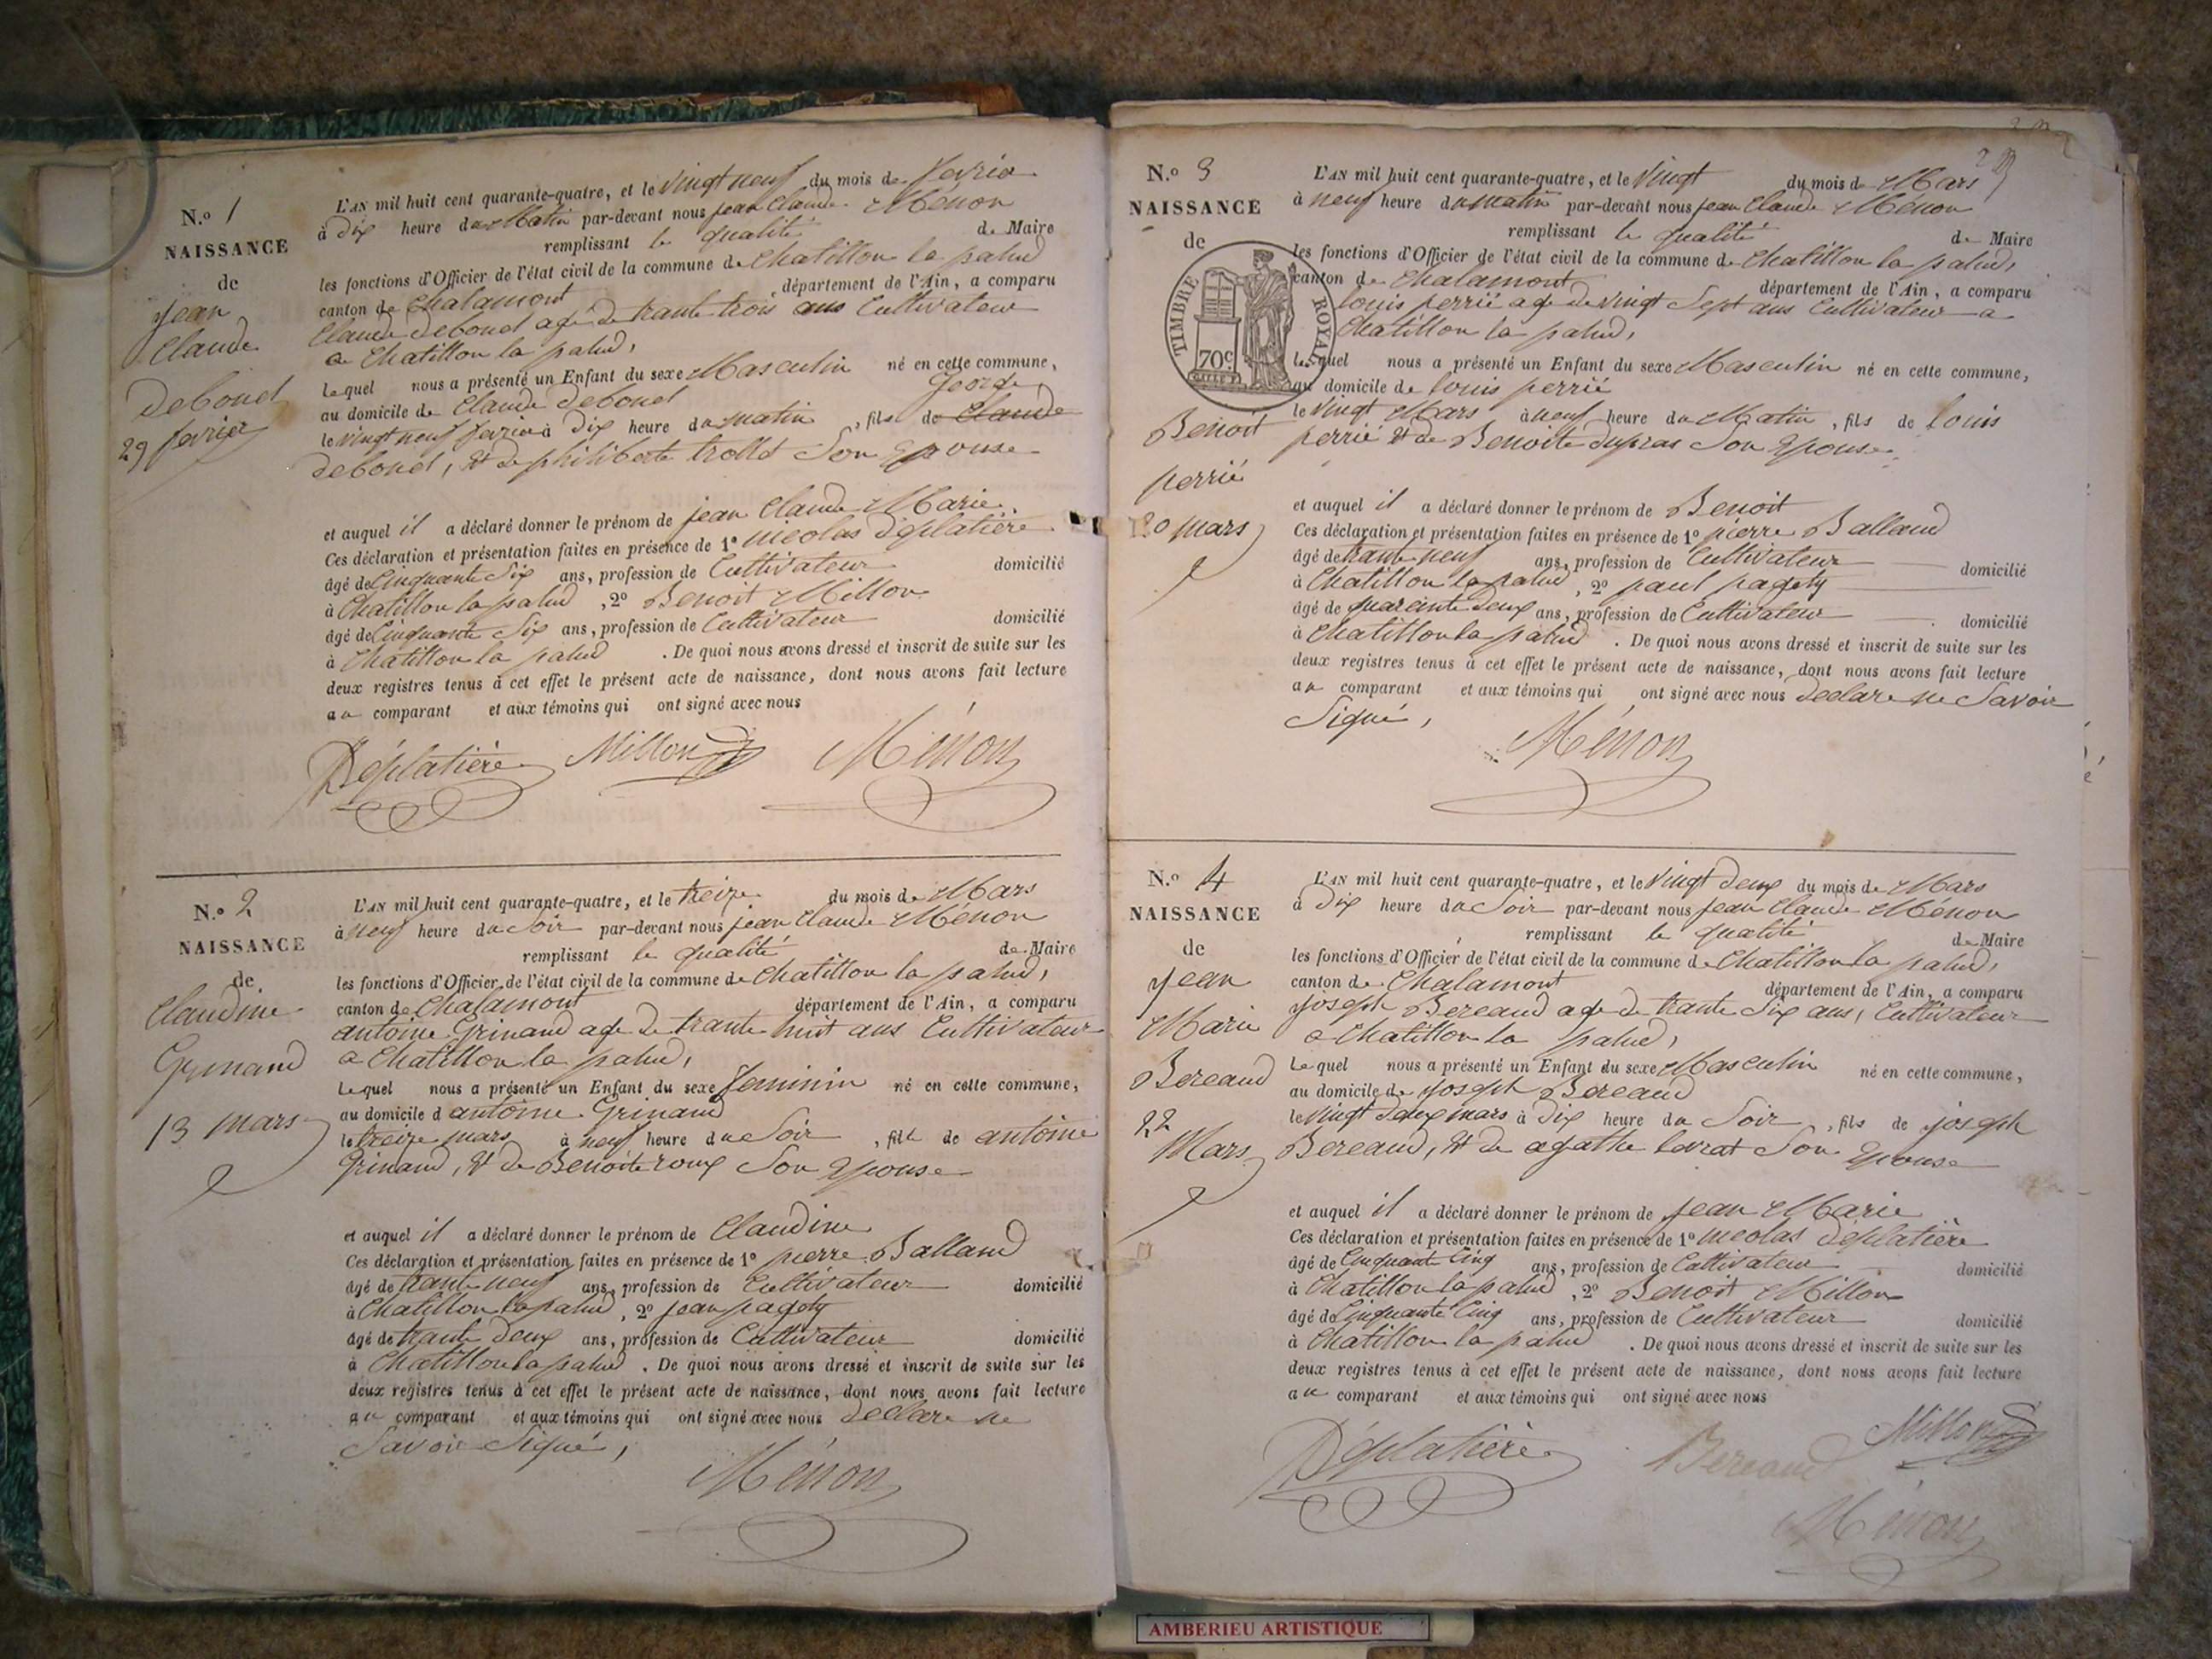 N.o 1
NAISSANCE
de
jean
Claude
Debond
29 fevrier
L'AN mil huit cent quarante-quatre, et le vingt neuf du mois de fevrier
à Dix heure du Matin par-devant nous jean Claude Ménon
remplissant le qualité de Maire
les fonctions d'Officier de l'état civil de la commune de Chatillon la palud
canton de Chalamont département de l'Ain, a comparu
Claude Debond agé de trante trois ans Cultivateur
a Chatillon la palud,
Lequel nous a présenté un Enfant du sexe Masculin né en cette commune,
au domicile de Claude Debond George
le vingt neuf fevrier à Dix heure du matin, fils de Claude
Debond, et de philiberte trollet Son Epouse
et auquel il a déclaré donner le prénom de jean Claude Marie
Ces déclaration et présentation faites en présence de 1o nicolas Déplatière
âgé de Cinquante Six ans, profession de Cultivateur domicilié
à Chatillon la palud, 2o Benoit Millon
âgé de Cinquante Six ans, profession de Cultivateur domicilié
à Chatillon la palud. De quoi nous avons dressé et inscrit de suite sur les
deux registres tenus à cet effet le présent acte de naissance, dont nous avons fait lecture
au comparant et aux témoins qui ont signé avec nous
Déplatière Millon Ménon
N.o 2
NAISSANCE
de
Claudine
Grinand
13 mars
L'AN mil huit cent quarante-quatre, et le treize du mois de Mars
à neuf heure du Soir par-devant nous jean Claude Ménon
remplissant le qualité de Maire
les fonctions d'Officier de l'état civil de la commune de Chatillon la palud,
canton de Chalamont département de l'Ain, a comparu
antoine Grinand age de trante huit ans Cultivateur
a Chatillon la palud,
Lequel nous a présenté un Enfant du sexe feminin né en cette commune,
au domicile d antoine Grinand
le treize mars à neuf heure du Soir, fille de antoine
Grinand, et de Benoite roux Son Epouse
et auquel il a déclaré donner le prénom de Claudine
Ces déclaration et présentation faites en présence de 1o pierre Balland
âgé de trante neuf ans, profession de Cultivateur domicilié
à Chatillon la palud, 2o jean pagety
âgé de trante Deux ans, profession de Cultivateur domicilié
à Chatillon la palud. De quoi nous avons dressé et inscrit de suite sur les
deux registres tenus à cet effet le présent acte de naissance, dont nous avons fait lecture
au comparant et aux témoins qui ont signé avec nous Declare ne
Savoir Signé,
Ménon
N.o 3
NAISSANCE
de
TIMBRE ROYAL
70c
Benoit
perrié
20 mars
L'AN mil huit cent quarante-quatre, et le vingt du mois de Mars
à neuf heure du matin par-devant nous jean Claude Ménon
remplissant le qualité de Maire
les fonctions d'Officier de l'état civil de la commune de Chatillon la palud,
canton de Chalamont département de l'Ain, a comparu
louis perrié age de vingt Sept ans Cultivateur a
Chatillon la palud,
lequel nous a présenté un Enfant du sexe Masculin né en cette commune,
au domicile de louis perrié
le vingt Mars à neuf heure du Matin, fils de louis
perrié et de Benoite dupras Son Epouse,
et auquel il a déclaré donner le prénom de Benoit
Ces déclaration et présentation faites en présence de 1o pierre Balland
âgé de trante neuf ans, profession de Cultivateur domicilié
à Chatillon la palud, 2o paul pagety
âgé de quarainte Deux ans, profession de Cultivateur domicilié
à Chatillon la palud. De quoi nous avons dressé et inscrit de suite sur les
deux registres tenus à cet effet le présent acte de naissance, dont nous avons fait lecture
au comparant et aux témoins qui ont signé avec nous Declare ne Savoir
Signé,
Ménon
N.o 4
NAISSANCE
de
jean
Marie
Bereaud
22
Mars
L'AN mil huit cent quarante-quatre, et le vingt Deux du mois de Mars
à Dix heure du Soir par-devant nous jean Claude Ménon
remplissant le qualité de Maire
les fonctions d'Officier de l'état civil de la commune de Chatillon la palud,
canton de Chalamont département de l'Ain, a comparu
joseph Bereaud age de trante Six ans, Cultivateur
a Chatillon la palud,
Lequel nous a présenté un Enfant du sexe Masculin né en cette commune,
au domicile de joseph Bereaud
le vingt Deux mars à Dix heure du Soir, fils de joseph
Bereaud, et de agathe levrat Son Epouse
et auquel il a déclaré donner le prénom de jean Marie
Ces déclaration et présentation faites en présence de 1o nicolas Déplatière
âgé de Cinquante Cinq ans, profession de Cultivateur domicilié
à Chatillon la palud, 2o Benoit Millon
âgé de Cinquante Cinq ans, profession de Cultivateur domicilié
à Chatillon la palud. De quoi nous avons dressé et inscrit de suite sur les
deux registres tenus à cet effet le présent acte de naissance, dont nous avons fait lecture
au comparant et aux témoins qui ont signé avec nous
Déplatière Bereaud Millon
Ménon
AMBERIEU ARTISTIQUE